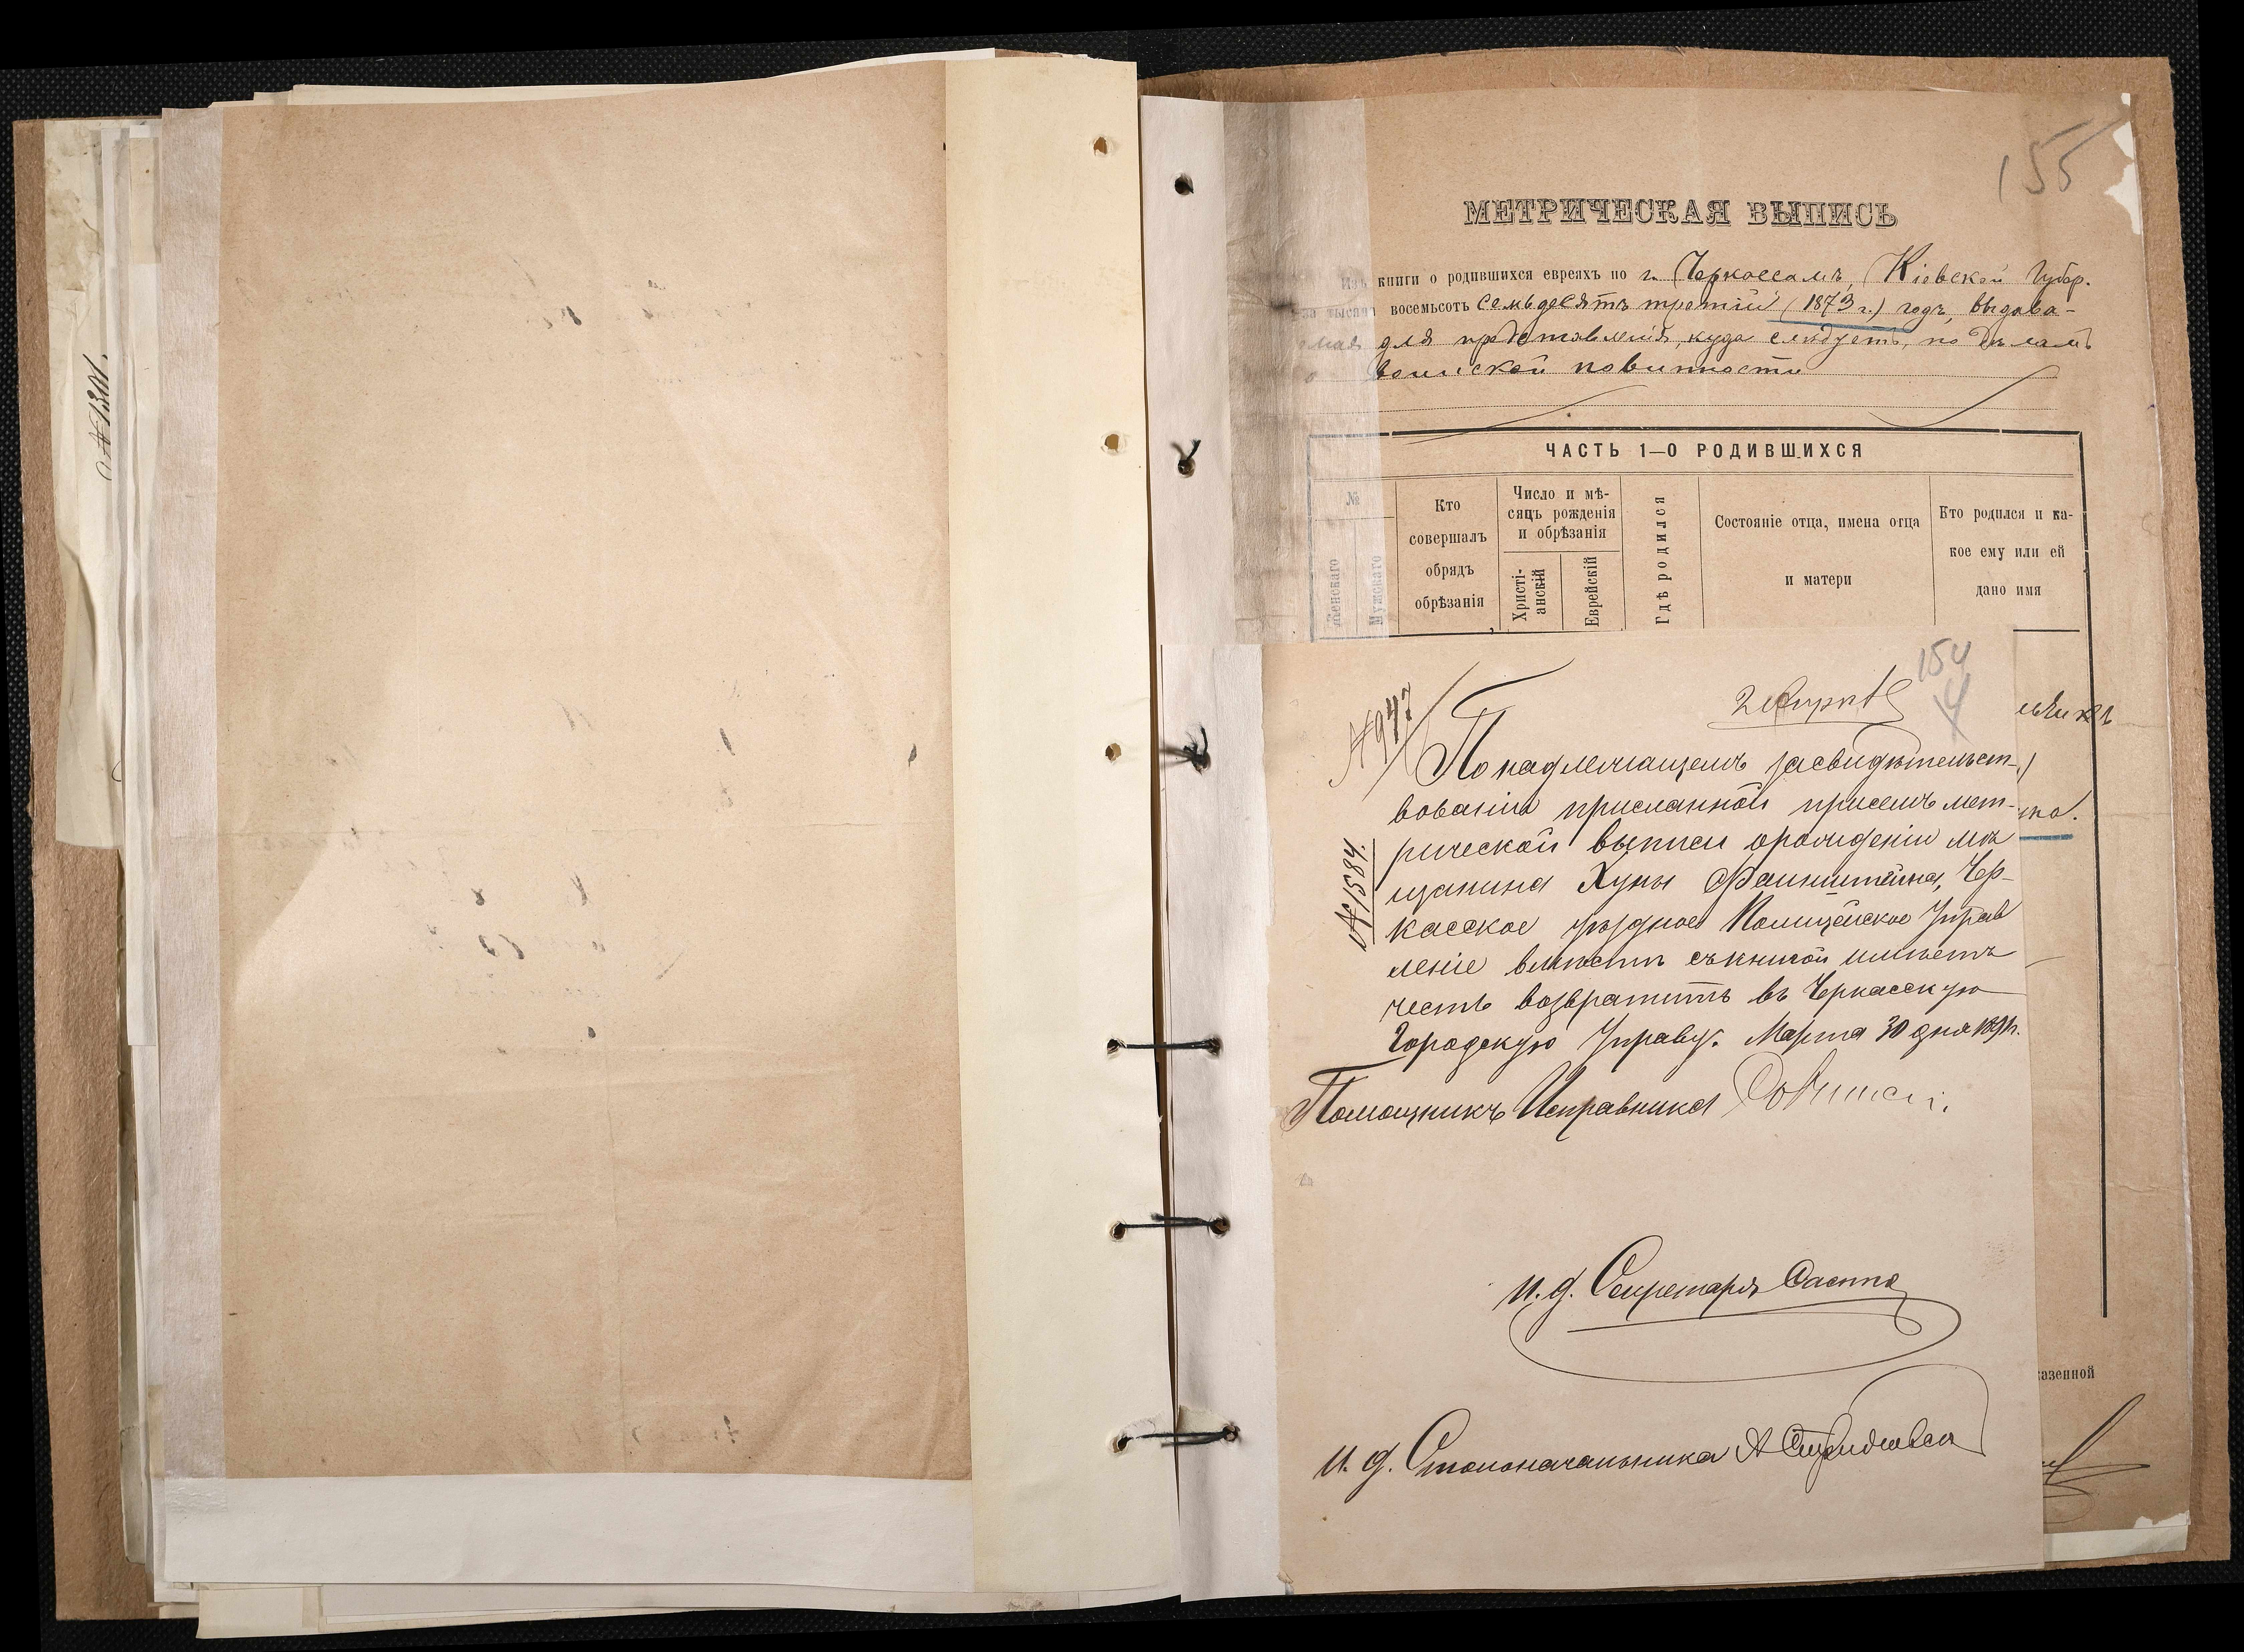 №1301.
155
МЕТРИЧЕСКАЯ ВЫПИСЬ
Изъ книги о родившихся евреяхъ по г. Черкассамъ, Кіевской Губер.
за тысяча восемьсотъ семьдесятъ третій (1873 г.) годъ, выдава-
емая для представленія, куда слѣдуетъ, по дѣламъ
о воинской повинности
ЧАСТЬ 1—О РОДИВШИХСЯ
№
Женскаго
Мужскаго
Кто совершалъ обрядъ обрѣзанія
Число и мѣ-
сяцъ рожденія
и обрѣзанія
Христі-
анскій
Еврейскій
Гдѣ родился
Состояніе отца, имена отца
и матери
Кто родился и ка-
кое ему или ей
дано имя
154
2 Апрѣл
№947
По надлежащемъ засвидѣтельст-
вованіи присланной присемъ мет-
рической выписи орожденіи мѣ
щанина Хуны Файнштейна, Чер-
касское уѣздное Полицейское Управ
леніе вмѣстѣ съкнигой имѣетъ
честь возвратить въ Черкасскую
Городскую Управу. Марта 30 дня
№1584
Помощникъ Исправника
И. д. Секретаря
И. д. Столоначальника А
казенной